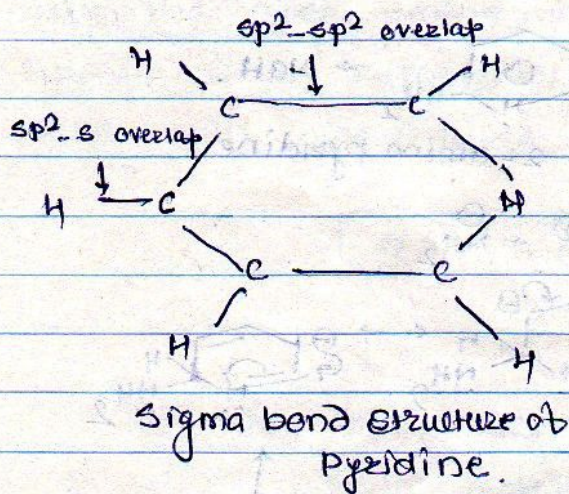 sp²-sp² overlap
H H
C C
sp²-s overlap
H C N
C C
H H
Sigma bond structure of
Pyridine.